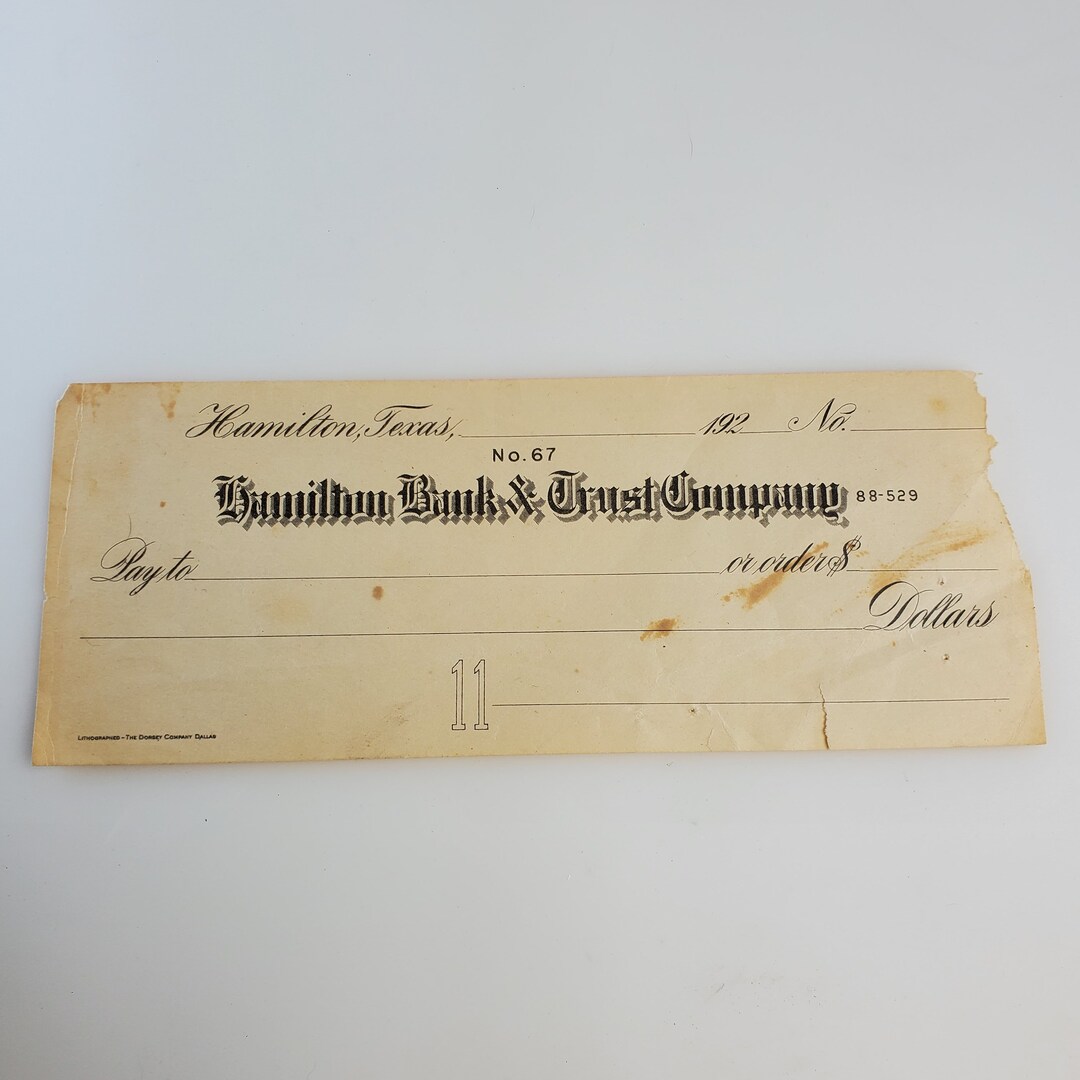 Hamilton, Texas, 192 No.
No. 67
Hamilton Bank & Trust Company 88-529
Pay to or order $
Dollars
11
Lithographed - The Dorsey Company Dallas